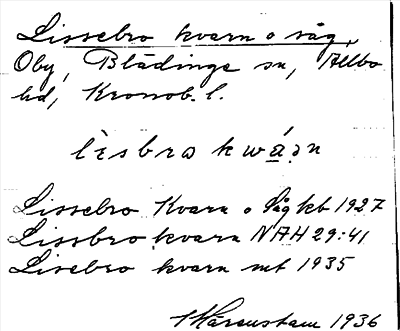 Lissebro kvarn o såg,
Oby, Blädinge sn, Allbo
hd, Kronob. l.
lisbra kwárn
Lissebro Kvarn o Såg kb 1927
Lissbro kvarn NAH 29:41
Lisebro kvarn mt 1935
1936